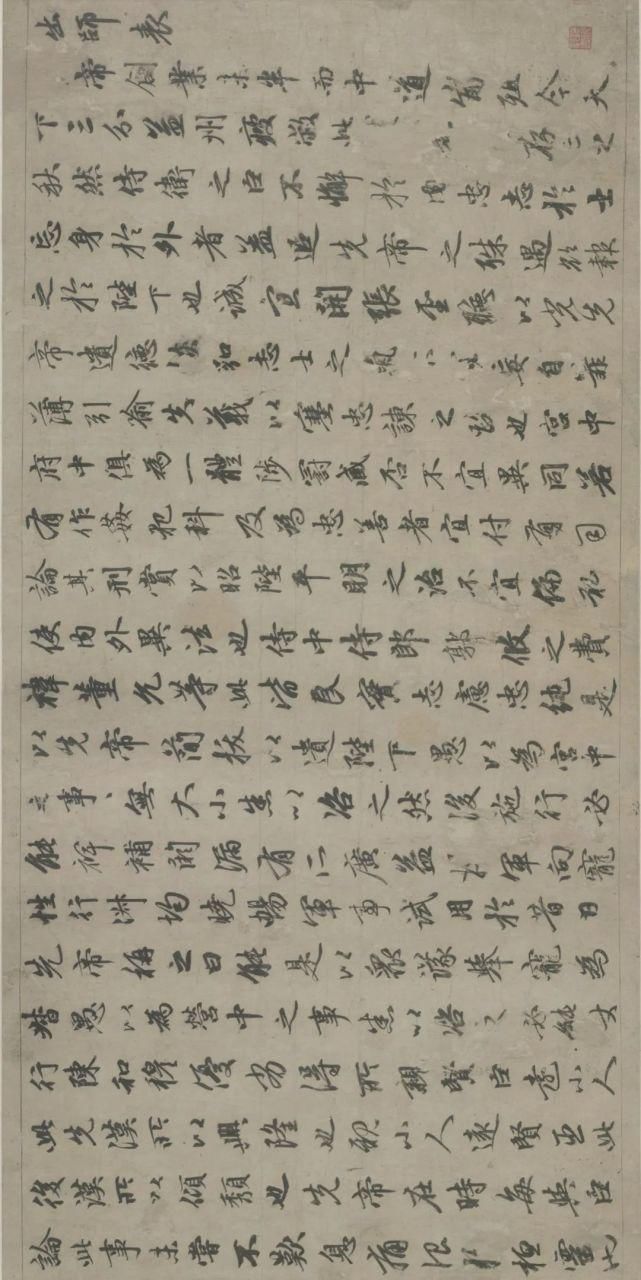 出師表
帝創業未半而中道崩殂今天
下三分益州疲敝此存亡之
秋然侍衛之臣不懈於內忠志於士
忘身於外者蓋追先帝之殊遇欲報
之於陛下也誠宜開張聖聽以光先
帝遺德恢弘志士之氣不宜妄自菲
薄引喻失義以塞忠諫之路也宮中
府中俱為一體陟罰臧否不宜異同若
有作姦犯科及為忠善者宜付有司
論其刑賞以昭陛平明之治不宜偏私
使內外異法也侍中侍郎郭攸之費
禕董允等此皆良實志慮忠純是
以先帝簡拔以遺陛下愚以為宮中
之事無大小悉以咨之然後施行必
能裨補闕漏有所廣益軍向寵
性行淑均曉暢軍事試用於昔日
先帝稱之曰能是以眾議舉寵為
督愚以為營中之事悉以咨之必能
行陳和穆優劣得所親賢臣遠小人
此先漢所以興隆也親小人遠賢臣此
後漢所以傾頹也先帝在時每與臣
論此事未嘗不歎息痛恨於桓靈也